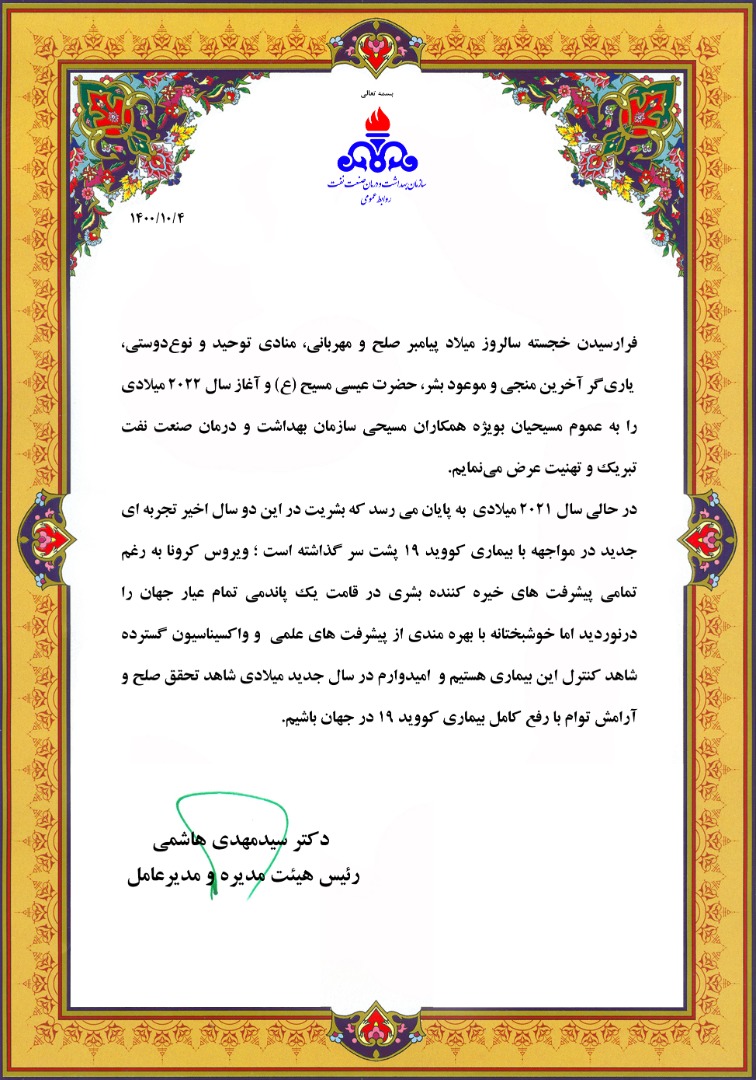 بسمه تعالی
سازمان بهداشت و درمان صنعت نفت
روابط عمومی
۱۴۰۰/۱۰/۴
فرارسیدن خجسته سالروز میلاد پیامبر صلح و مهربانی، منادی توحید و نوع‌دوستی،
یاری‌گر آخرین منجی و موعود بشر، حضرت عیسی مسیح (ع) و آغاز سال ۲۰۲۲ میلادی
را به عموم مسیحیان بویژه همکاران مسیحی سازمان بهداشت و درمان صنعت نفت
تبریک و تهنیت عرض می‌نمایم.
در حالی سال ۲۰۲۱ میلادی به پایان می رسد که بشریت در این دو سال اخیر تجربه ای
جدید در مواجهه با بیماری کووید ۱۹ پشت سر گذاشته است ؛ ویروس کرونا به رغم
تمامی پیشرفت های خیره کننده بشری در قامت یک پاندمی تمام عیار جهان را
درنوردید اما خوشبختانه با بهره مندی از پیشرفت های علمی و واکسیناسیون گسترده
شاهد کنترل این بیماری هستیم و امیدوارم در سال جدید میلادی شاهد تحقق صلح و
آرامش توام با رفع کامل بیماری کووید ۱۹ در جهان باشیم.
دکتر سیدمهدی هاشمی
رئیس هیئت مدیره و مدیرعامل